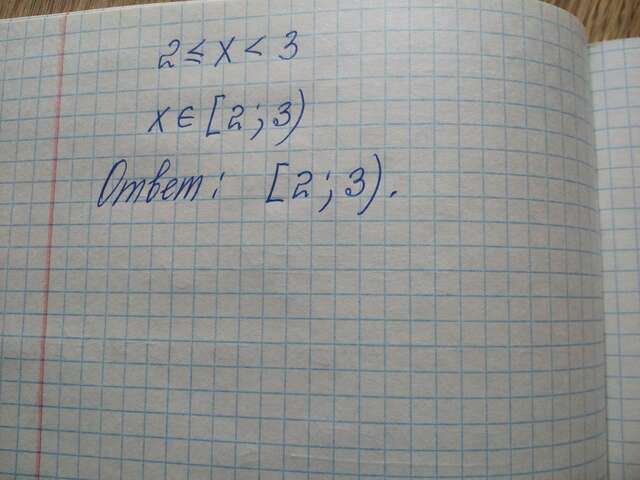 2 ≤ x < 3
x ∈ [2; 3)
Ответ: [2; 3).